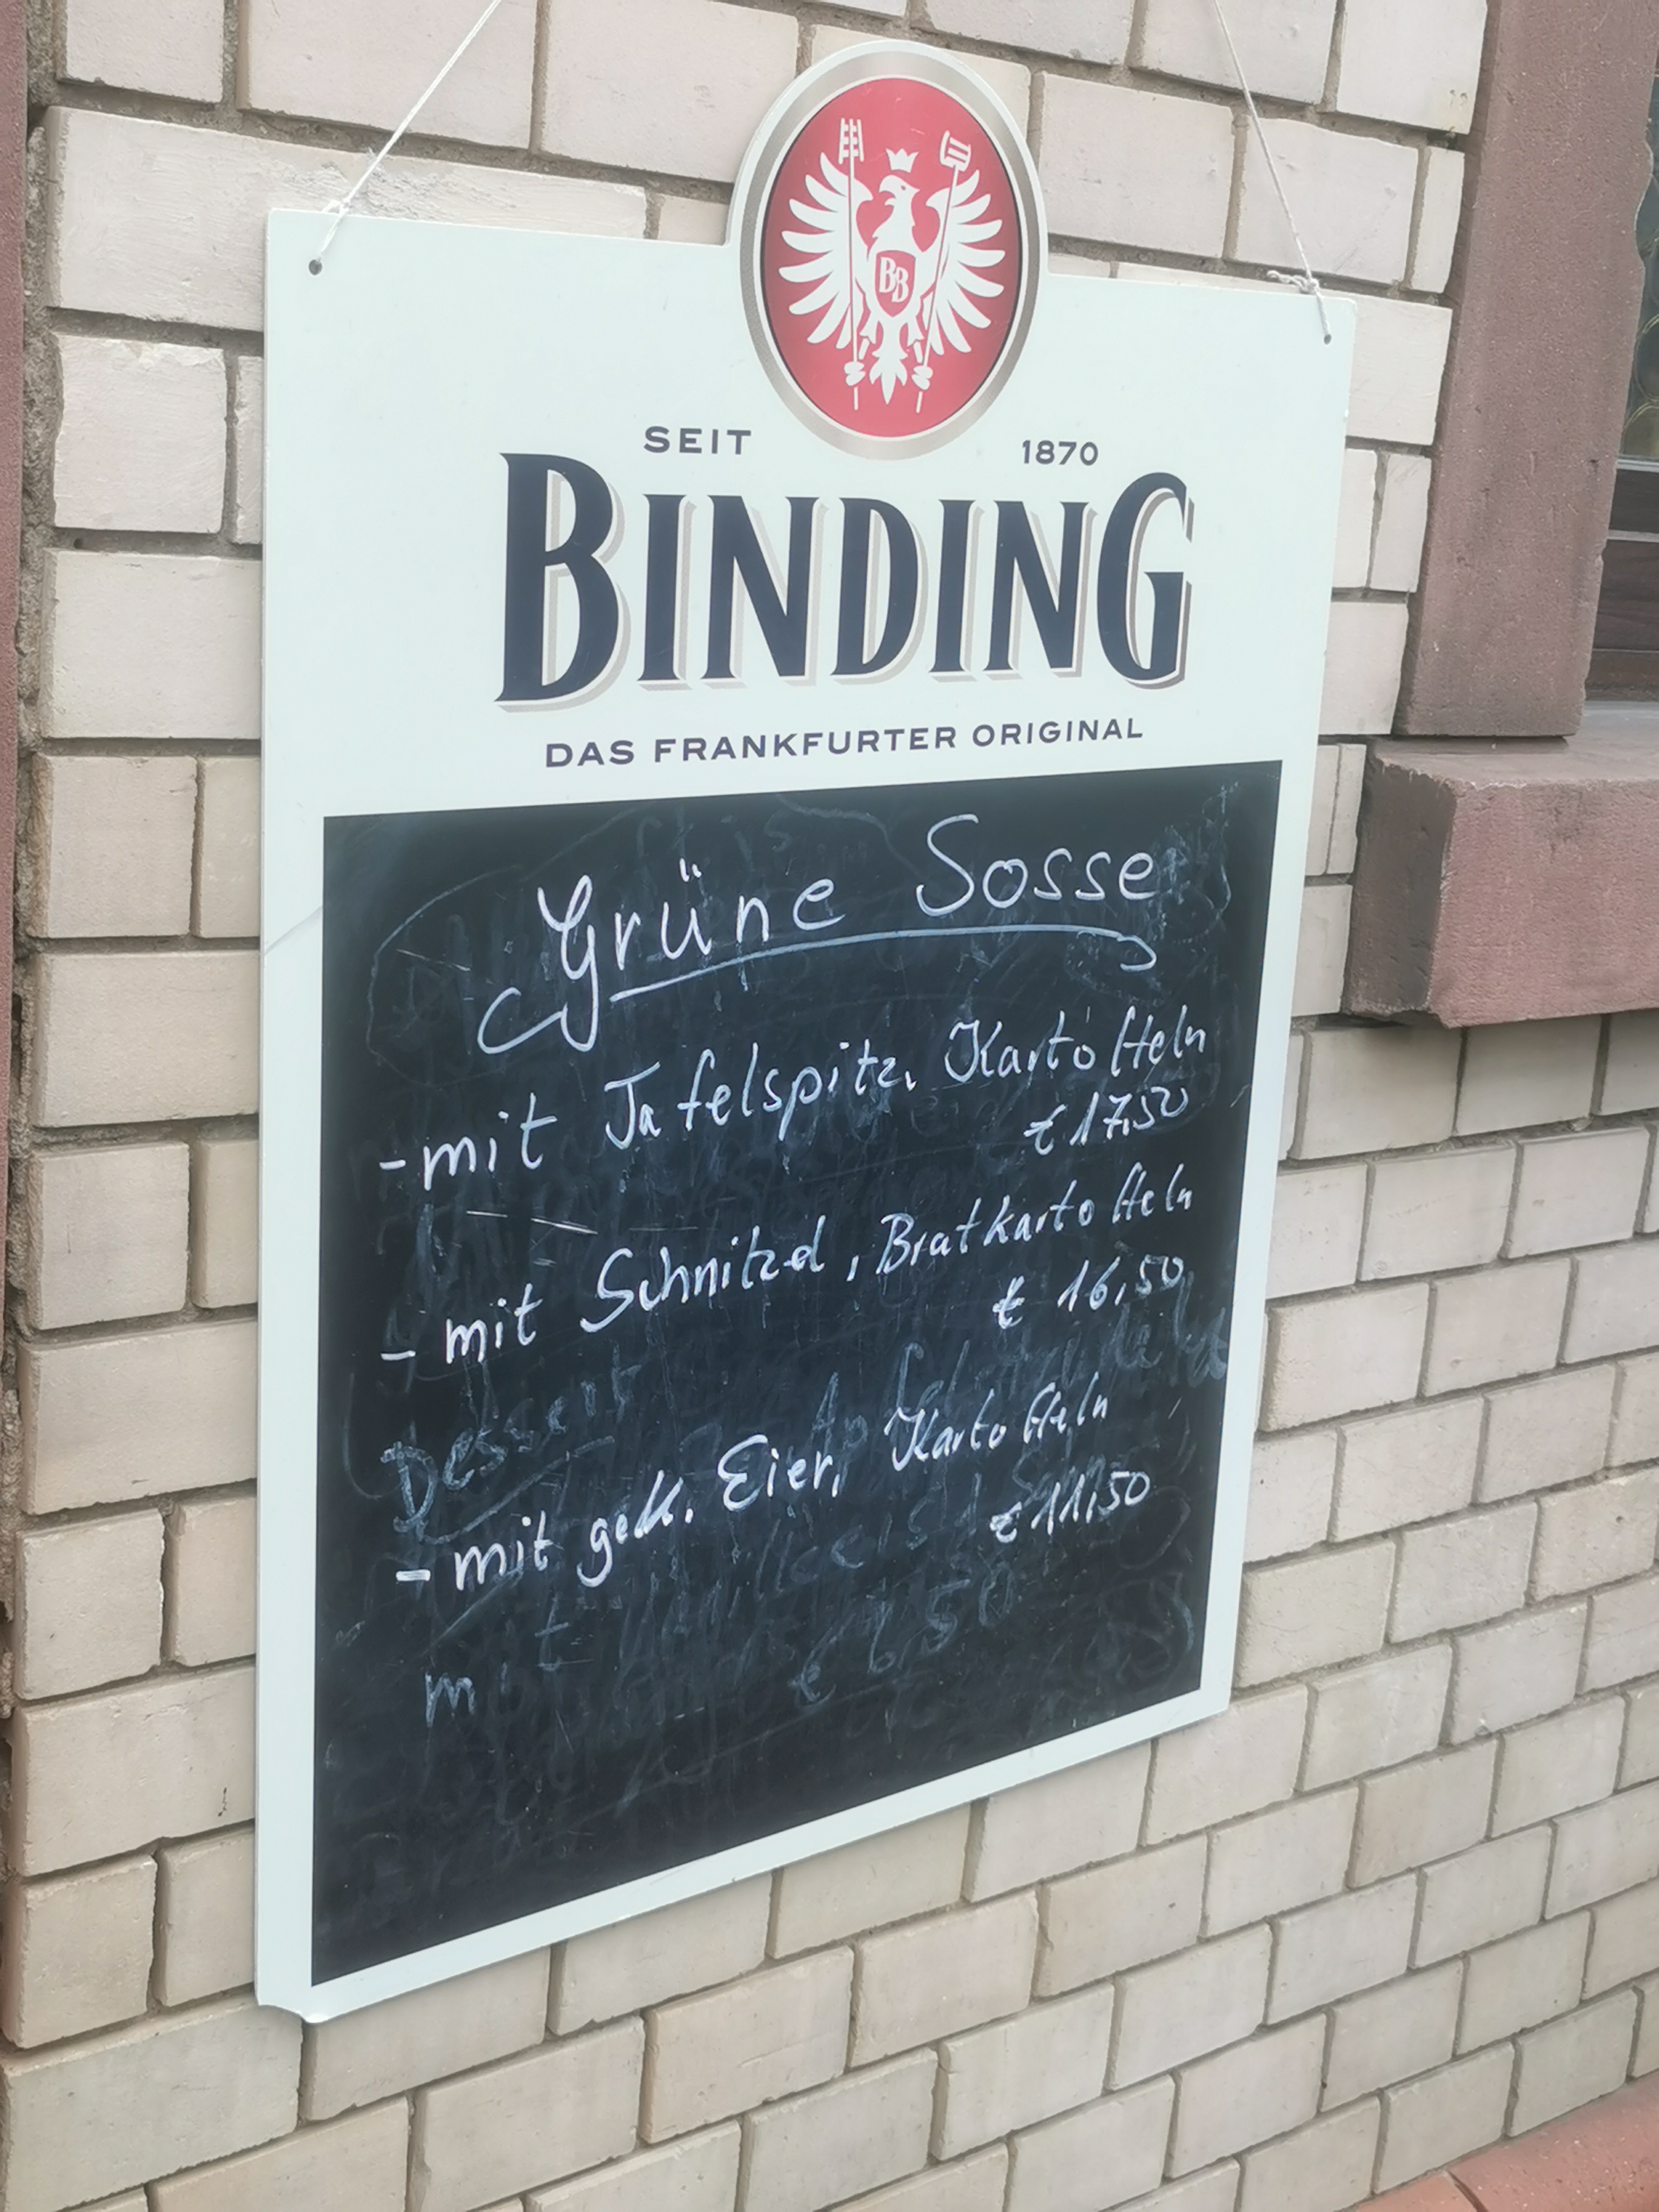 BB
SEIT 1870
BINDING
DAS FRANKFURTER ORIGINAL
Grüne Sosse
- mit Tafelspitz, Kartoffeln
€ 17,50
- mit Schnitzel, Bratkartoffeln
€ 16,50
Dessert
- mit gek. Eier, Kartoffeln
€ 11,50